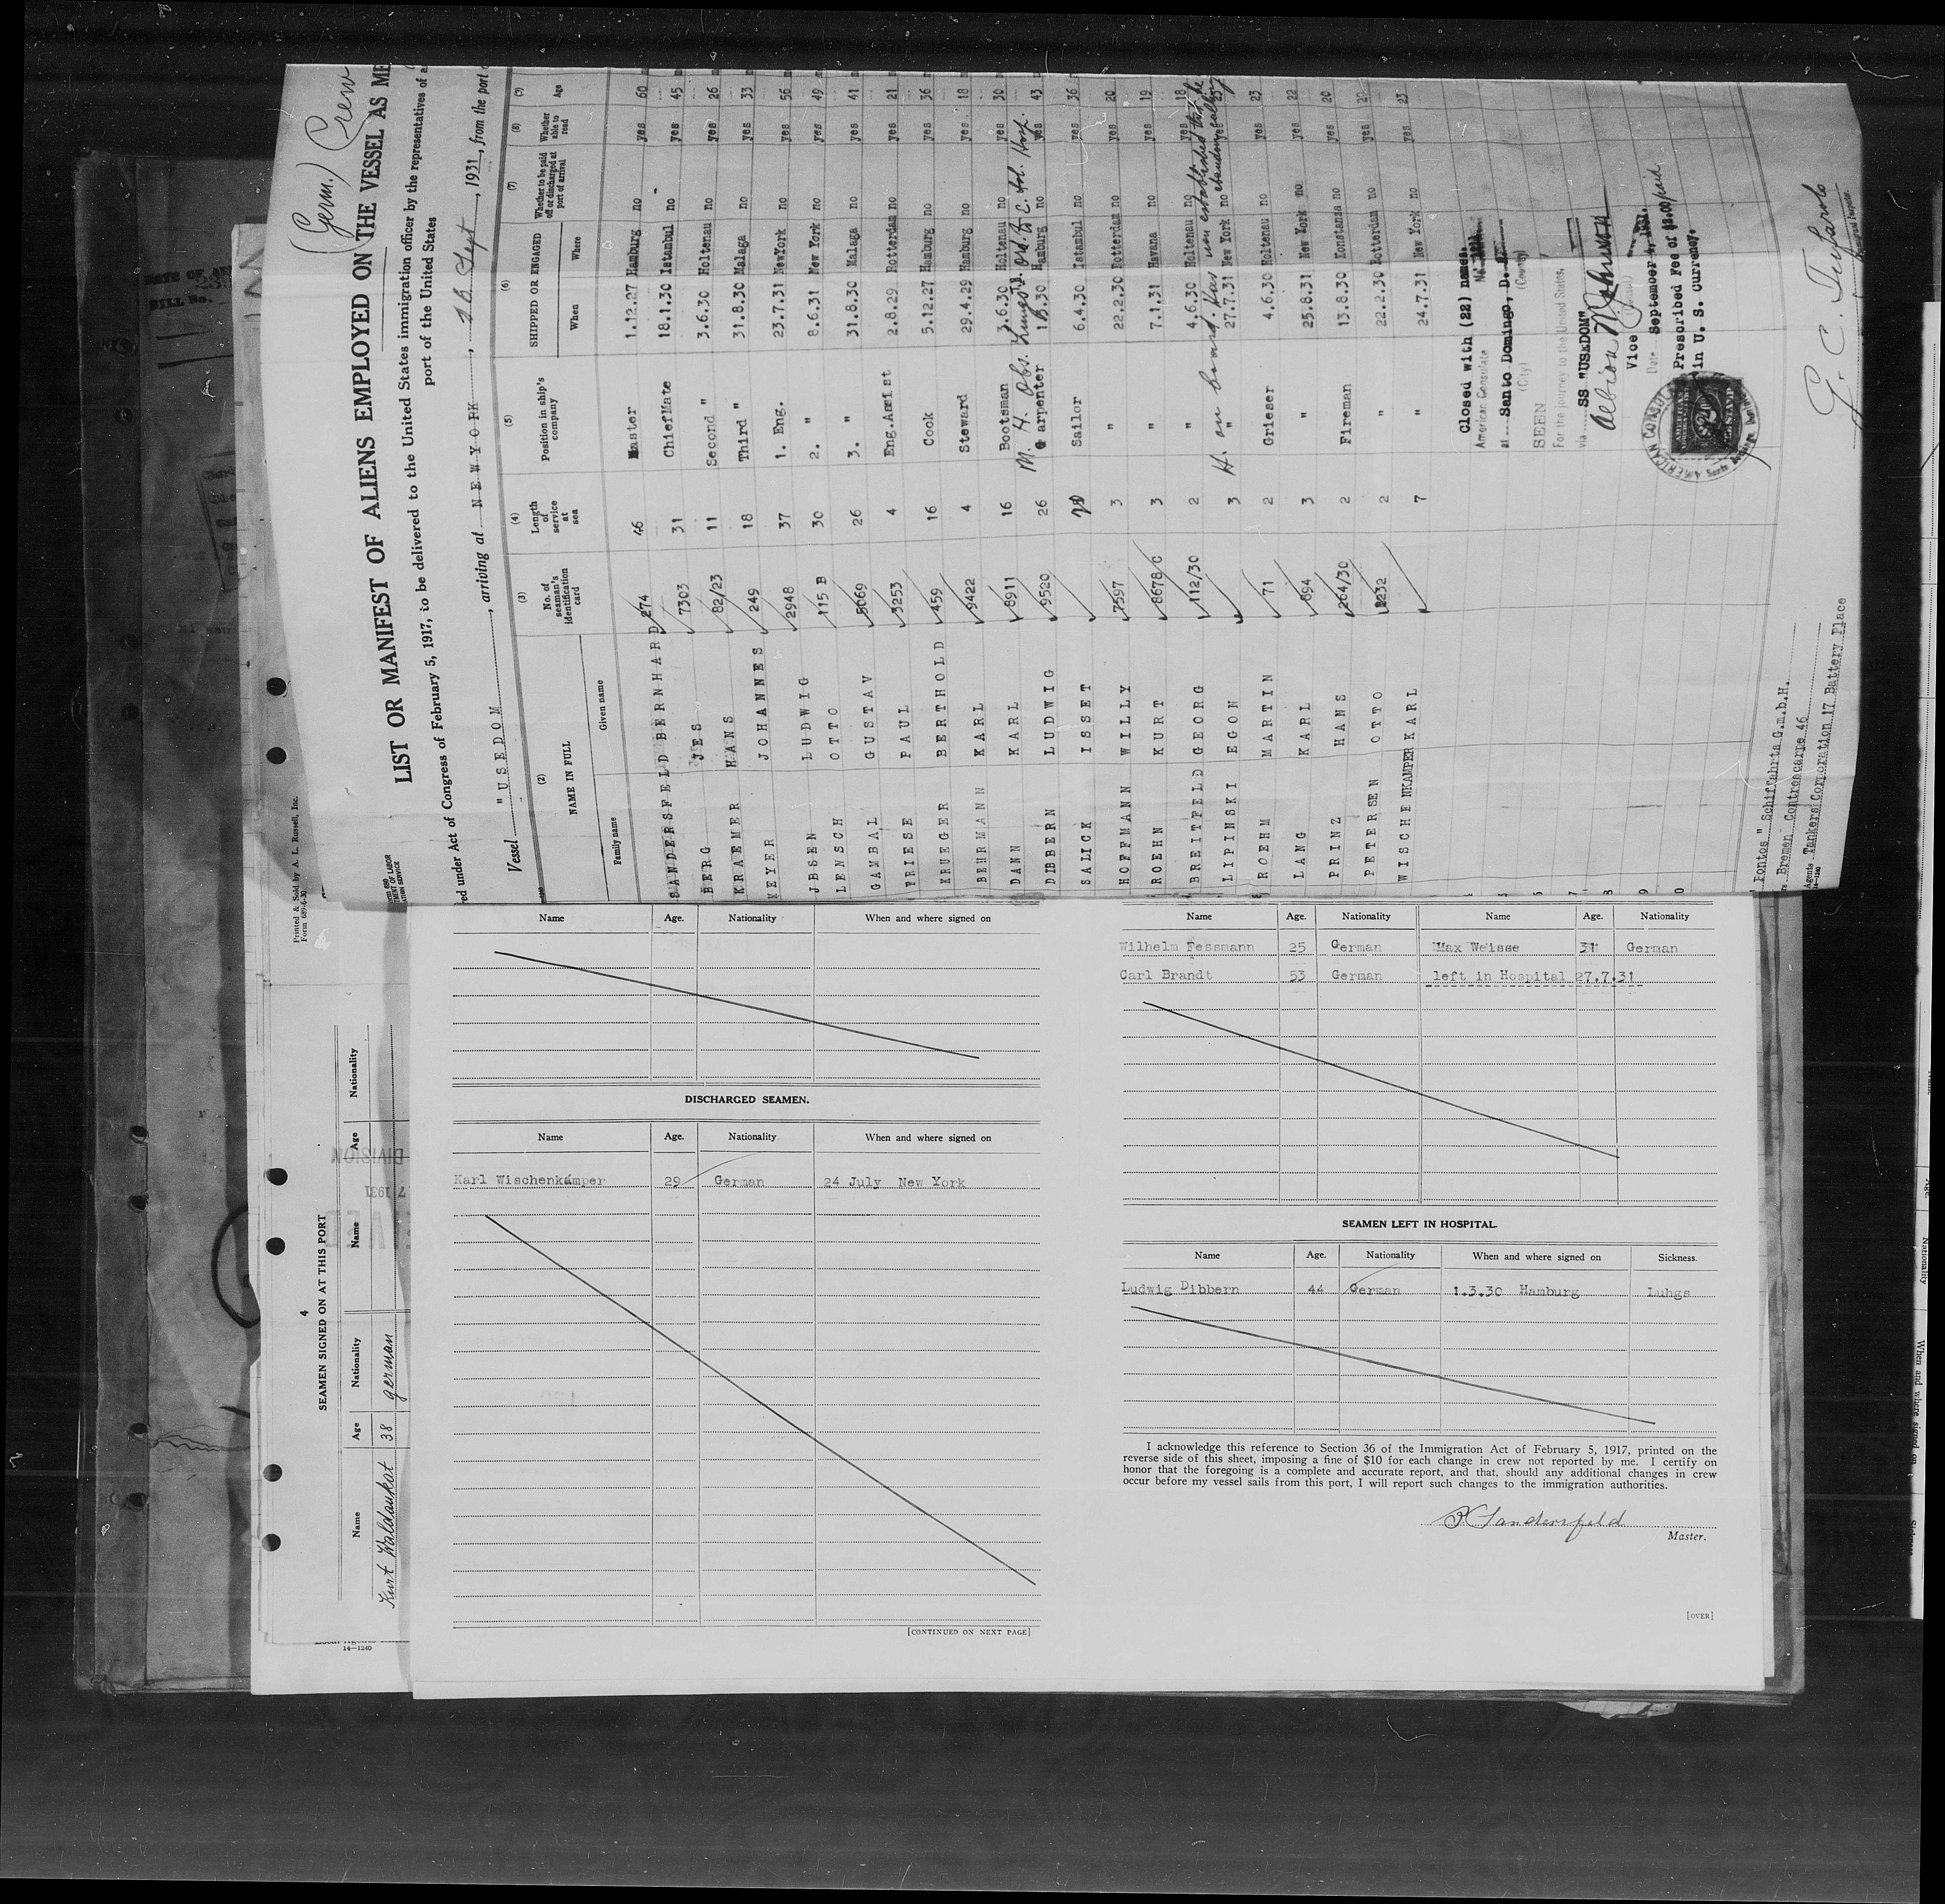 (Germ.) Crew
LIST OR MANIFEST OF ALIENS EMPLOYED ON THE VESSEL AS ME
red under Act of Congress of February 5, 1917, to be delivered to the United States immigration officer by the representatives of a
port of the United States
Vessel "USEDOM", arriving at NEW YORK, Sept, 1931, from the port o
(2) (3) (4) (5) (6) (7) (8) (9)
NAME IN FULL No. of seaman's identification card Length of service at sea Position in ship's company SHIPPED OR ENGAGED Whether to be paid off or discharged at port of arrival Whether able to read Age
Family name Given name When Where
SANDERSFELD BERNHARD 274 46 Master 1.12.27 Hamburg no yes 60
BERG JES 7303 31 ChiefMate 18.1.30 Istambul no yes 45
KRAEMER HANS 82/23 11 Second " 3.6.30 Holtenau no yes 26
MEYER JOHANNES 249 18 Third " 31.8.30 Malaga no yes 33
JBSEN LUDWIG 2948 37 1. Eng. 23.7.31 NewYork no yes 56
LENSCH OTTO 115 B 30 2. " 8.6.31 New York no yes 49
GAMBAL GUSTAV 5069 26 3. " 31.8.30 Malaga no yes 41
FRIESE PAUL 3253 4 Eng.Assist 2.8.29 Rotterdam no yes 21
KRUEGER BERTHOLD 459 16 Cook 5.12.27 Hamburg no yes 36
BEHRMANN KARL 9422 4 Steward 29.4.29 Hamburg no yes 18
DANN KARL 8911 16 Bootsman 3.6.30 Holtenau no yes 30
DIBBERN LUDWIG 9520 26 Carpenter 1.3.30 Hamburg no yes 43
SALICK ISSET Sailor 6.4.30 Istambul no yes 36
HOFFMANN WILLY 7597 3 " 22.2.30 Rotterdam no yes 20
ROEHN KURT 8678 C 3 " 7.1.31 Havana no yes 19
BREITFELD GEORG 112/30 2 " 4.6.30 Holtenau no yes 18
LIPINSKI EGON 3 " 27.7.31 New York no yes
ROEHM MARTIN 71 2 Grieser 4.6.30 Holtenau no yes 23
LANG KARL 894 3 " 25.8.31 New York no yes 22
PRINZ HANS 264/30 2 Fireman 13.8.30 Konstanza no yes 20
PETERSEN OTTO 2232 2 " 22.2.30 Rotterdam no yes 20
WISCHENKAMPER KARL 7 " 24.7.31 New York no yes 23
Closed with (22) names.
American Consulate
at Santo Domingo, D.
(City) (Country)
SEEN
For the journey to the United States,
via SS "USEDOM"
Vice
Date September
Prescribed Fee of paid
in U. S. Currency.
AMERICAN CONSUL
Pontos" Schiffahrts G.m.b.H.
Bremen Contrescarpe 46
Agents Tankers Corporation 17 Battery Place
14-1240
Printed & Sold by A. L. Russell, Inc.
Form 689-6-30
4
SEAMEN SIGNED ON AT THIS PORT
Name Age Nationality Name Age Nationality
Kurt Waldaukat 38 german
14—1240
Name Age. Nationality When and where signed on
DISCHARGED SEAMEN.
Name Age. Nationality When and where signed on
Karl Wischenkämper 29 German 24 July New York
[CONTINUED ON NEXT PAGE]
Name Age. Nationality Name Age. Nationality
Wilhelm Fessmann 25 German Max Weisse 31 German
Carl Brandt 53 German left in Hospital 27.7.31
SEAMEN LEFT IN HOSPITAL.
Name Age. Nationality When and where signed on Sickness.
Ludwig Dibbern 44 German 1.3.30 Hamburg Luhgs
I acknowledge this reference to Section 36 of the Immigration Act of February 5, 1917, printed on the
reverse side of this sheet, imposing a fine of $10 for each change in crew not reported by me. I certify on
honor that the foregoing is a complete and accurate report, and that, should any additional changes in crew
occur before my vessel sails from this port, I will report such changes to the immigration authorities.
B Sandersfeld
Master.
[OVER]